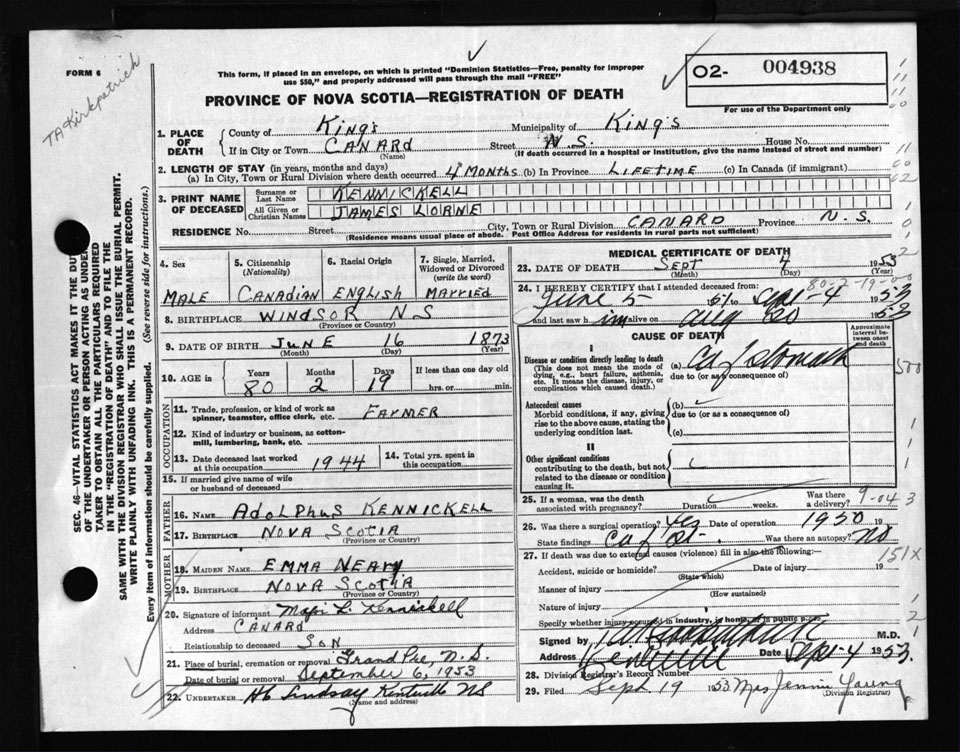 FORM 6
TA Kirkpatrick
This form, if placed in an envelope, on which is printed "Dominion Statistics—Free, penalty for improper
use $50," and properly addressed will pass through the mail "FREE"
02- 004938
For use of the Department only
PROVINCE OF NOVA SCOTIA—REGISTRATION OF DEATH
SEC. 46—VITAL STATISTICS ACT MAKES IT THE DUTY
OF THE UNDERTAKER OR PERSON ACTING AS UNDER-
TAKER TO OBTAIN ALL THE PARTICULARS REQUIRED
IN THE "REGISTRATION OF DEATH" AND TO FILE THE
SAME WITH THE DIVISION REGISTRAR WHO SHALL ISSUE THE BURIAL PERMIT.
WRITE PLAINLY WITH UNFADING INK. THIS IS A PERMANENT RECORD.
Every item of information should be carefully supplied. (See reverse side for instructions.)
1. PLACE OF DEATH County of King's Municipality of King's
If in City or Town CANARD (Name) Street N.S. House No.
(If death occurred in a hospital or institution, give the name instead of street and number)
2. LENGTH OF STAY (in years, months and days)
(a) In City, Town or Rural Division where death occurred 4 MONTHS (b) In Province LIFETIME (c) In Canada (if immigrant)
3. PRINT NAME OF DECEASED Surname or Last Name KENNICKELL
All Given or Christian Names JAMES LORNE
RESIDENCE No. Street City, Town or Rural Division CANARD Province N.S.
(Residence means usual place of abode. Post Office Address for residents in rural parts not sufficient)
4. Sex MALE
5. Citizenship (Nationality) CANADIAN
6. Racial Origin ENGLISH
7. Single, Married, Widowed or Divorced (write the word) MARRIED
8. BIRTHPLACE WINDSOR NS
(Province or Country)
9. DATE OF BIRTH JUNE (Month) 16 (Day) 1873 (Year)
10. AGE in Years 80 Months 2 Days 19 If less than one day old hrs. or min.
OCCUPATION
11. Trade, profession, or kind of work as spinner, teamster, office clerk, etc. FARMER
12. Kind of industry or business, as cotton-mill, lumbering, bank, etc.
13. Date deceased last worked at this occupation 1944
14. Total yrs. spent in this occupation
15. If married give name of wife or husband of deceased
FATHER
16. NAME ADOLPHUS KENNICKELL
17. BIRTHPLACE NOVA SCOTIA
(Province or Country)
MOTHER
18. MAIDEN NAME EMMA NEARY
19. BIRTHPLACE NOVA SCOTIA
(Province or Country)
20. Signature of informant L. Kennickell
Address CANARD
Relationship to deceased SON
21. Place of burial, cremation or removal Grand Pre, N.S.
Date of burial or removal September 6, 1953
22. UNDERTAKER Lindsay Kentville NS
(Name and address)
MEDICAL CERTIFICATE OF DEATH
23. DATE OF DEATH Sept (Month) 4 (Day) 1953 (Year)
80-2-19-0-0
24. I HEREBY CERTIFY that I attended deceased from:
June 5 1951 to Sept-4 1953
and last saw him alive on Aug 20 1953
CAUSE OF DEATH
Approximate interval between onset and death
I
Disease or condition directly leading to death (a) Ca of stomach
(This does not mean the mode of dying, e.g., heart failure, asthenia, etc. It means the disease, injury, or complication which caused death.)
due to (or as consequence of)
Antecedent causes (b)
Morbid conditions, if any, giving rise to the above cause, stating the underlying condition last.
due to (or as a consequence of)
(c)
II
Other significant conditions
contributing to the death, but not related to the disease or condition causing it.
25. If a woman, was the death associated with pregnancy? Duration weeks. Was there a delivery?
9-04 3
26. Was there a surgical operation? yes Date of operation 1950 19
State findings Was there an autopsy? NO
27. If death was due to external causes (violence) fill in also the following:—
151X
Accident, suicide or homicide? (State which) Date of injury 19
Manner of injury (How sustained)
Nature of injury
Specify whether injury occurred in industry, in home, or in public place
Signed by M.D.
Address Kentville Date Sept-4 1953
28. Division Registrar's Record Number
29. Filed Sept 19 1953 Mrs Jennie Young
(Division Registrar)